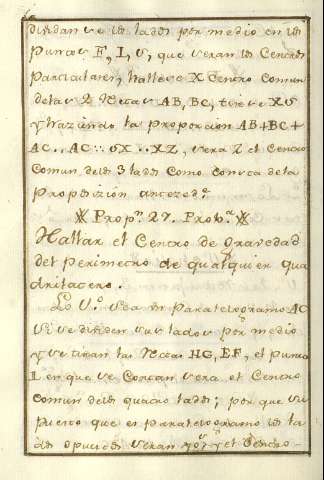 dividanse los lados por medio en los
Puntos F, I, S, que seran los Centros
Particulares, hallese X Centro Comun
delas 2 Rectas AB, BC, tirese XS
y haziendo la Proporcion AB+BC+
AC.. AC :: SX .. XZ, sera Z el Centro
Comun delos 3 lados Como consta dela
Proposizión anteced.e
Prop.n 27. Prob.a
Hallar el Centro de gravedad
del Perimetro de qualquier qua
drilatero.
Lo 1.o sea un Paralelogramo AC
si se dividen sus lados por medio
y se tiran las Rectas HG, EF, el punto
I en que se Cortan sera el Centro
Comun delos quatro lados; por que su
puesto que es paralelogramo los la
dos opuestos seran y el Centro